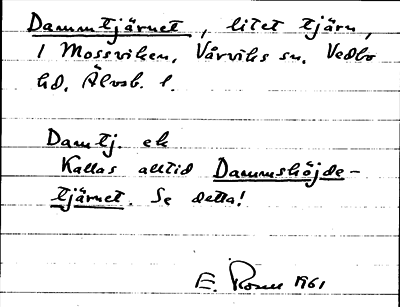 Dammtjärnet, litet tjärn,
1 Mossviken, Vårviks sn, Vedbo
hd, Älvsb. l.
Damtj. ek
Kallas alltid Dammshöjde-
tjärnet. Se detta!
E. 1961